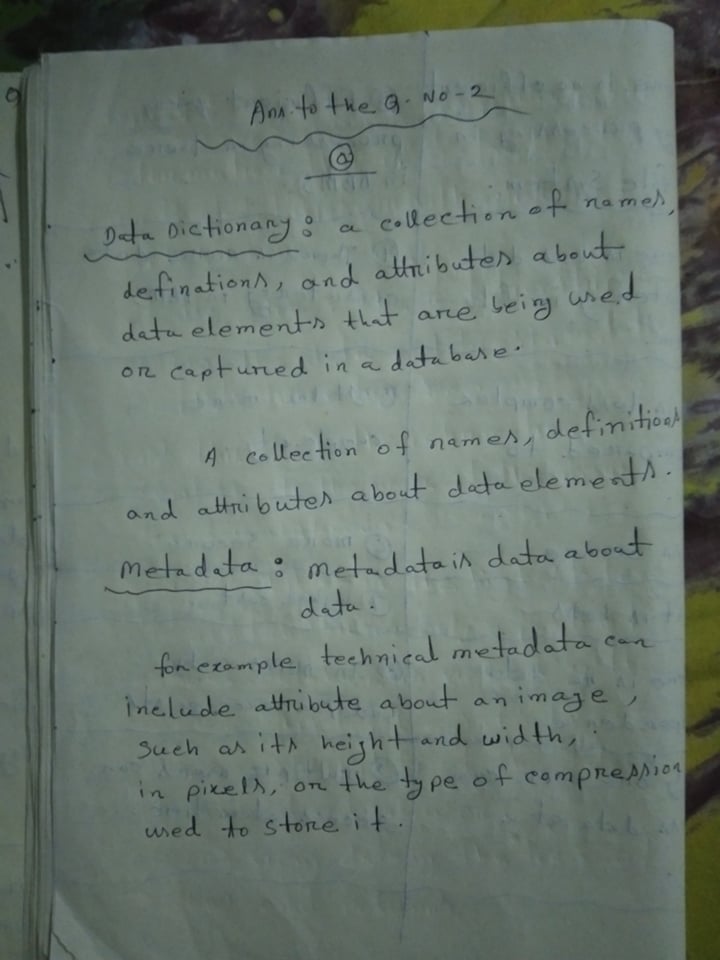 Ans. to the Q. No-2
a
Data Dictionary: a collection of names,
definations, and attributes about
data elements that are being used
or captured in a database.
A collection of names, definitions
and attributes about data elements.
Metadata: metadata is data about
data.
for example technical metadata can
include attribute about an image,
such as its height and width,
in pixels, or the type of compression
used to store it.